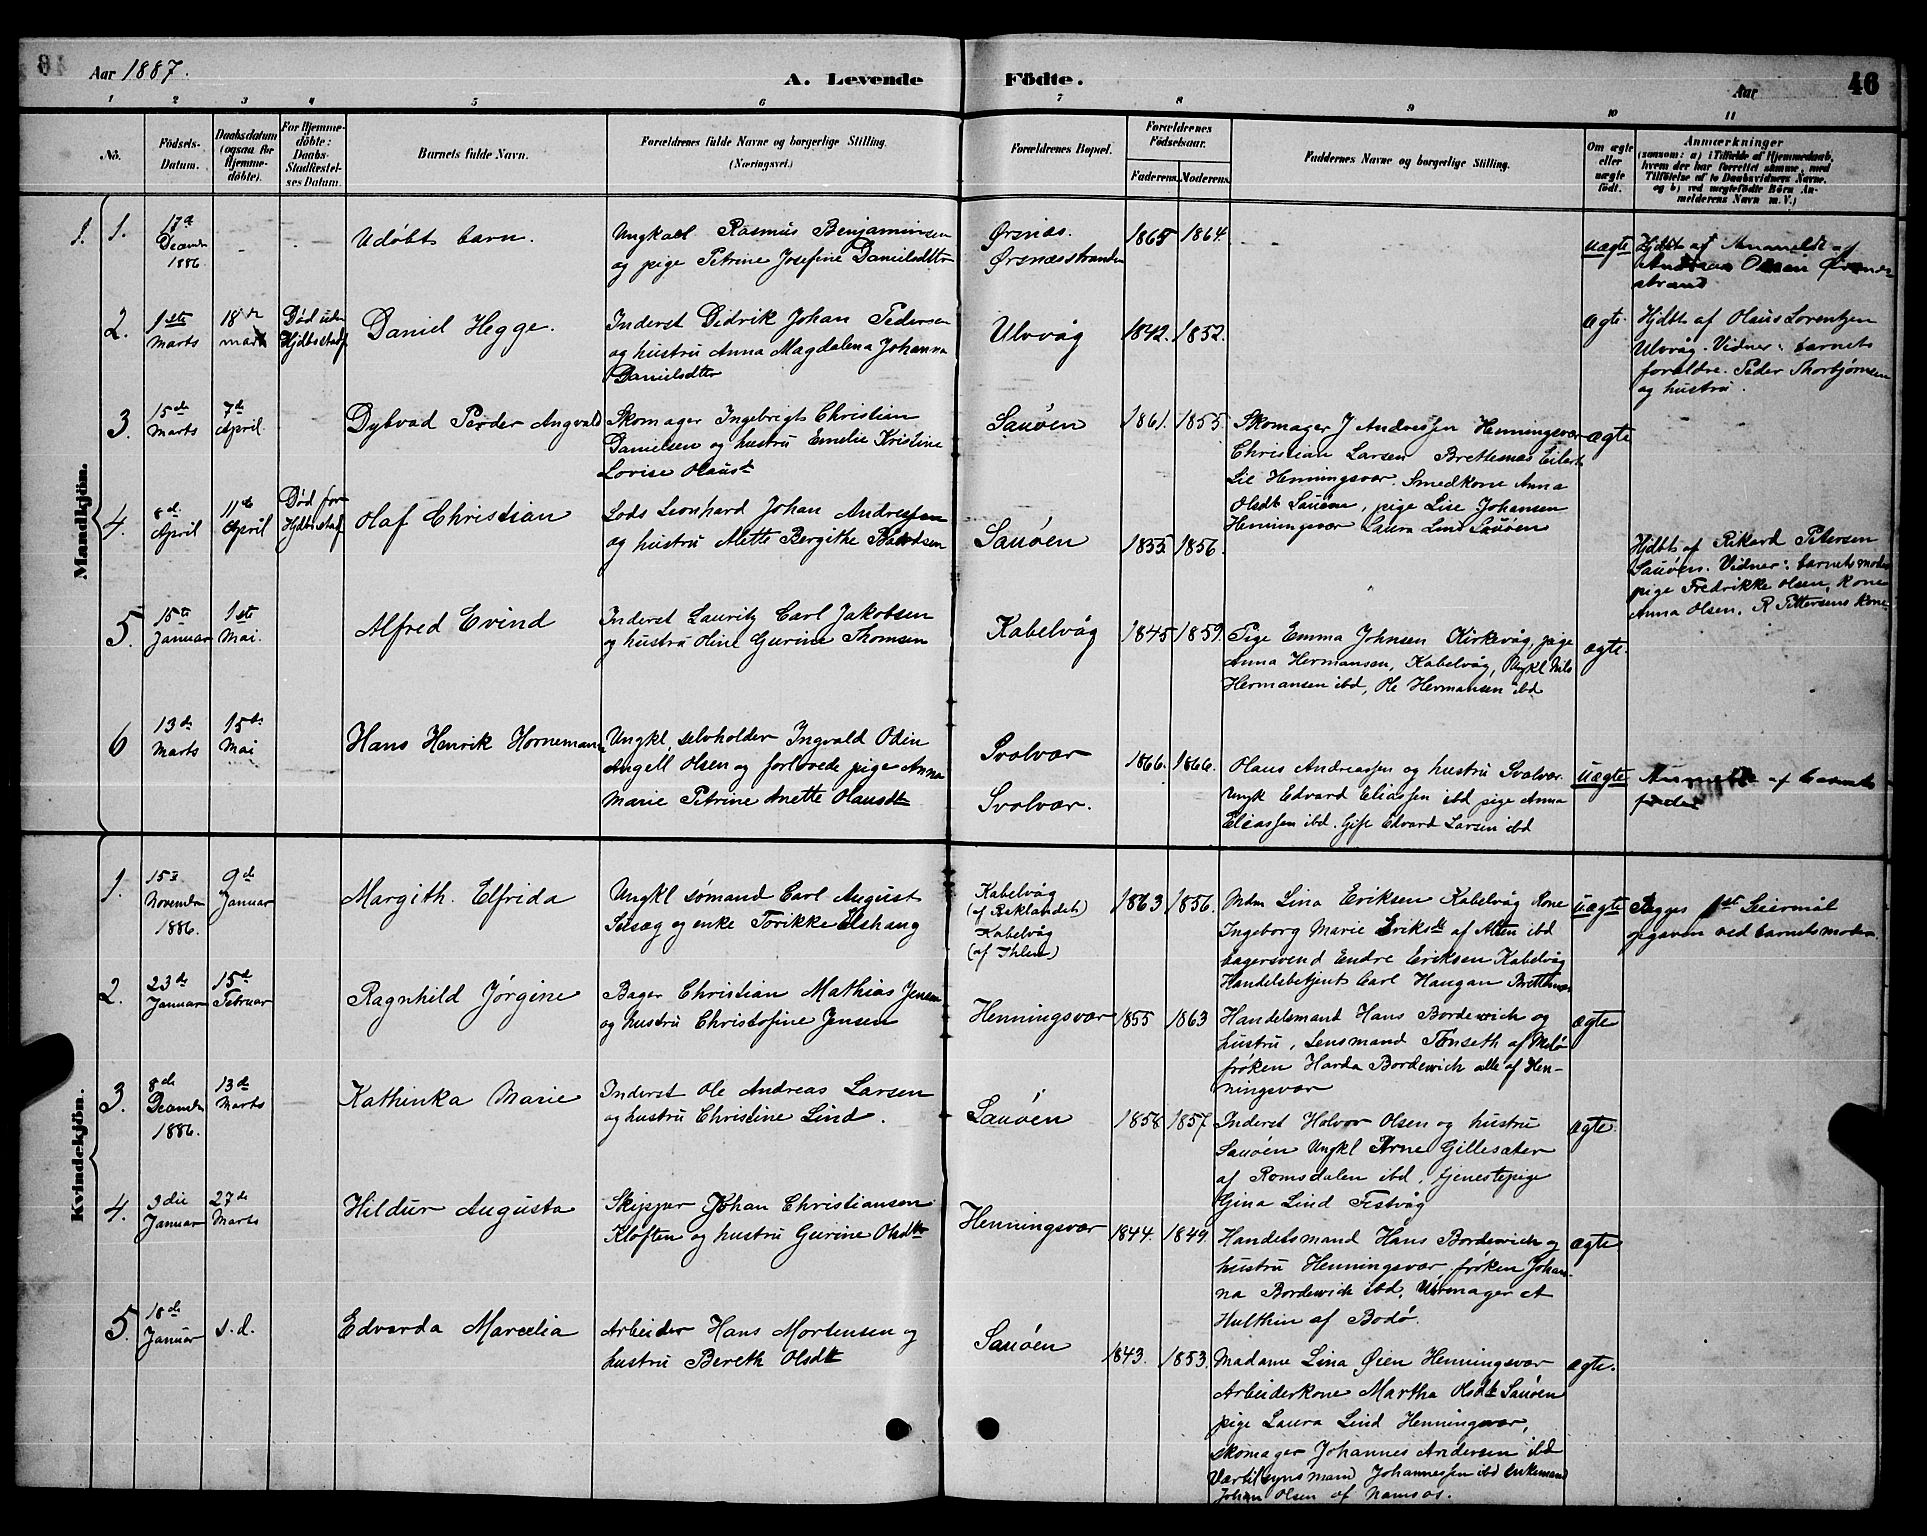 Aar 1887.
A. Levende
Födte.
Aar
46
1 2 3 4 5 6 7 8 9 10 11
Nö.
Födsels-
Datum.
Daabsdatum
(ogsaa for
Hjemme-
döbte).
For Hjemme-
döbte:
Daabs-
Stadfæstel-
ses Datum.
Barnets fulde Navn.
Forældrenes fulde Navne og borgerlige Stilling.
(Næringsvei.)
Forældrenes Bopæl.
Forældrenes
Födselsaar.
Faderens.
Moderens.
Faddernes Navne og borgerlige Stilling.
Om ægte
eller
uægte
født.
Anmærkninger
(saasom: a) i Tilfælde af Hjemmedaab,
hvem der har forrettet samme, med
Tilföielse af to Daabsvidners Navne,
og b) ved uægtefödte Börn An-
melderens Navn m. V.)
Mandkjön.
1. 1.
17de
Decembr
1886
Udøbt barn.
Ungkarl Rasmus Benjaminsen
og pige Petrine Josefine Danielsdttr
Ørsnæs.
Ørsnæsstranden
1865 1864.
uægte
Hjdbt af Anmeldt af
Andreas Olsen Ørsnæs
strand
2.
1ste
Marts
18de
marts
Død uden
Hjdbsstadf
Daniel Hegge.
Inderst Didrik Johan Pedersen
og hustru Anna Magdalena Johanna
Danielsdtr
Ulvvåg
1842. 1852.
ægte.
Hjdbt af Olaus Lorentzen
Ulvvåg. Vidner: barnets
forældre. Peder Thorbjørnsen
og hustru.
3.
15de
Marts
7de
April.
Dybvad Peder Angvald
Skomager Ingebrigt Christian
Danielsen og hustru Emelie Kristine
Lovise Olausdt
Sauøen
1861. 1855.
Skomager J Andressen Henningsvær
Christian Larsen Brettesnæs Eilert
Lie Henningsvær. Smedkone Anna
Olsdt Sauøen, pige Lise Johansen
Henningsvær Laura Lind Sauøen
ægte
4.
8de
April
11te
April
Død før
Hjdbsstadf
Olaf Christian
Lods Leonhard Johan Andressen
og hustru Alette Bergithe Bårdsen
Sauøen
1855. 1856.
Hjdbt af Rikard Petersen
Sauøen. Vidner: barnets moder
pige Fredrikke Olsen, kone
Anna Olsen, R Pettersens kone
5.
15de
Januar
1ste
Mai.
Alfred Evind
Inderst Lauritz Carl Jakobsen
og hustru Oline Gurine Thomsen
Kabelvåg
1845 1859.
Pige Emma Johnsen Kirkevåg, pige
Anna Hermansen, Kabelvåg, Ungkl Nils
Hermansen ibd, Ole Hermansen ibd
ægte.
6
13de
Marts
15de
Mai
Hans Henrik Hornemann
Ungkl, selvholder Ingvald Odin
Angell Olsen og forlovede pige Anna
Marie Petrine Anette Olausdt
Svolvær
Svolvær.
1866. 1866.
Olaus Andreassen og hustru Svolvær.
Ungk Edvard Eliassen ibd pige Anna
Eliassen ibd. Gift Edvard Larsen ibd
uægte
Anmeldt af barnets
fader
Kvindekjön.
1.
15de
November
1886.
9de
Januar
Margith. Elfrida
Ungkl sømand Carl August
og enke Torikke Elshaug
Kabelvåg
(af Raklandet)
Kabelvåg
(af Ihlen)
1863 1856.
Mdm Lina Eriksen Kabelvåg Kone
Ingeborg Marie Eriksdt af Alten ibd
bagersvend Endre Eriksen Kabelvåg
Handelsbetjent Carl Haugan Brettesnæs
uægte
Begges 1ste Leiermål
opgaven ved barnets moder.
2.
23de
Januar
15de
Februar
Ragnhild Jørgine
Bager Christian Mathias Jensen
og hustru Christofine Jensen
Henningsvær
1855 1863
Handelsmand Hans Bordewich og
hustru, Lensmand Tønseth af Melø
frøken Harda Bordewich alle af Hen-
ningsvær
ægte
3.
8de
Decembr
1886.
13de
Marts
Kathinka Marie
Inderst Ole Andreas Larsen
og hustru Christine Lind.
Sauøen
1858 1857
Inderst Halvor Olsen og hustru
Sauøen Ungkl Arne Gillesæter
af Romsdalen ibd, tjenestepige
Gina Lind Festvåg
ægte.
4.
3die
Januar
27de
Marts
Hildur Augusta
Skipper Johan Christiansen
Kløften og hustru Gurine Olsdtt
Henningsvær
1844. 1849.
Handelsmand Hans Bordewich og
hustru Henningsvær frøken Johan-
na Bordewich ibd, Uhrmager et
Hulthin af Bodø.
ægte
5.
18de
Januar
s. d.
Edvarda Marcelia
Arbeider Hans Mortensen og
hustru Bereth Olsdt
Sauøen
1843. 1853.
Madame Lina Øien Henningsvær
Arbeiderkone Martha Olsdt Sauøen
pige Laura Lind Henningsvær,
skomager Johannes Andersen ibd
Værtilsynsmand Johannessen ibd Enkemand
Johan Olsen af Namsos.
ægte.